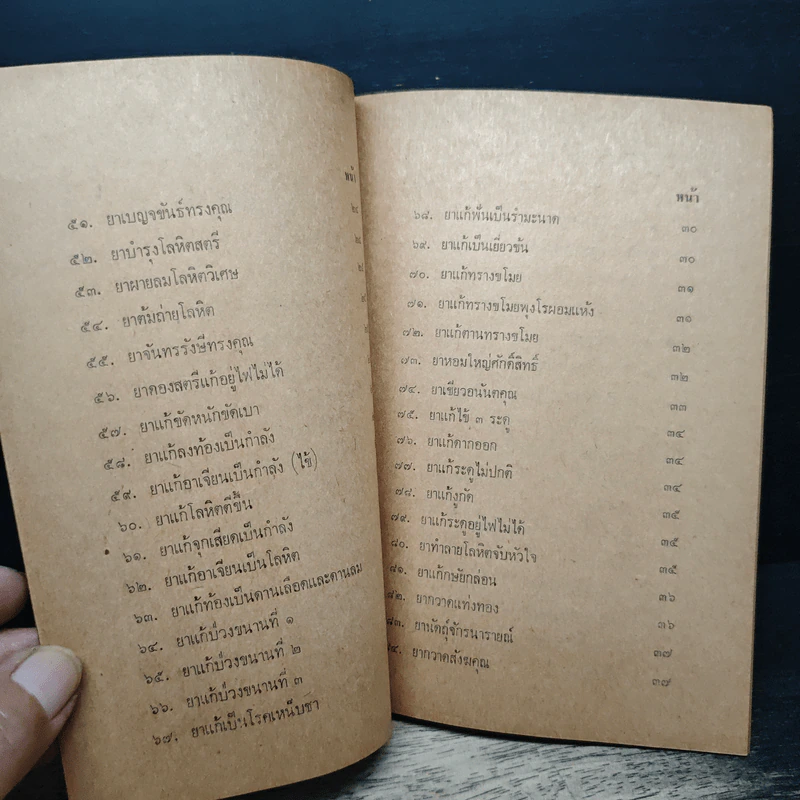 หน้า
๕๑. ยาเบญจขันธ์ทรงคุณ ๒๔
๕๒. ยาบำรุงโลหิตสตรี
๕๓. ยาผายลมโลหิตวิเศษ
๕๔. ยาต้มถ่ายโลหิต
๕๕. ยาจันทรรังษีทรงคุณ
๕๖. ยาดองสตรีแก้อยู่ไฟไม่ได้
๕๗. ยาแก้ขัดหนักขัดเบา
๕๘. ยาแก้ลงท้องเป็นกำลัง
๕๙. ยาแก้อาเจียนเป็นกำลัง (ไข้)
๖๐. ยาแก้โลหิตตีขึ้น
๖๑. ยาแก้จุกเสียดเป็นกำลัง
๖๒. ยาแก้อาเจียนเป็นโลหิต
๖๓. ยาแก้ท้องเป็นดานเลือดและดานลม
๖๔. ยาแก้บ๋วงขนานที่ ๑
๖๕. ยาแก้บ๋วงขนานที่ ๒
๖๖. ยาแก้บ๋วงขนานที่ ๓
๖๗. ยาแก้เป็นโรคเหน็บชา
หน้า
๖๘. ยาแก้ฟันเป็นรำมะนาด ๓๐
๖๙. ยาแก้เป็นเยี่ยวขัน ๓๐
๗๐. ยาแก้ทรางขโมย ๓๑
๗๑. ยาแก้ทรางขโมยพุงโรผอมแห้ง ๓๑
๗๒. ยาแก้ตานทรางขโมย ๓๒
๗๓. ยาหอมใหญ่ศักดิ์สิทธิ์ ๓๒
๗๔. ยาเขียวอนันตคุณ ๓๓
๗๕. ยาแก้ไข้ ๓ ระดู ๓๔
๗๖. ยาแก้ดากออก ๓๔
๗๗. ยาแก้ระดูไม่ปกติ ๓๔
๗๘. ยาแก้งูกัด ๓๕
๗๙. ยาแก้ระดูอยู่ไฟไม่ได้ ๓๕
๘๐. ยาทำลายโลหิตจับหัวใจ ๓๕
๘๑. ยาแก้กษัยกล่อน ๓๖
๘๒. ยากวาดแท่งทอง ๓๖
๘๓. ยานัตถุ์จักรนารายณ์ ๓๗
๔. ยากวาดสังฆคุณ ๓๗